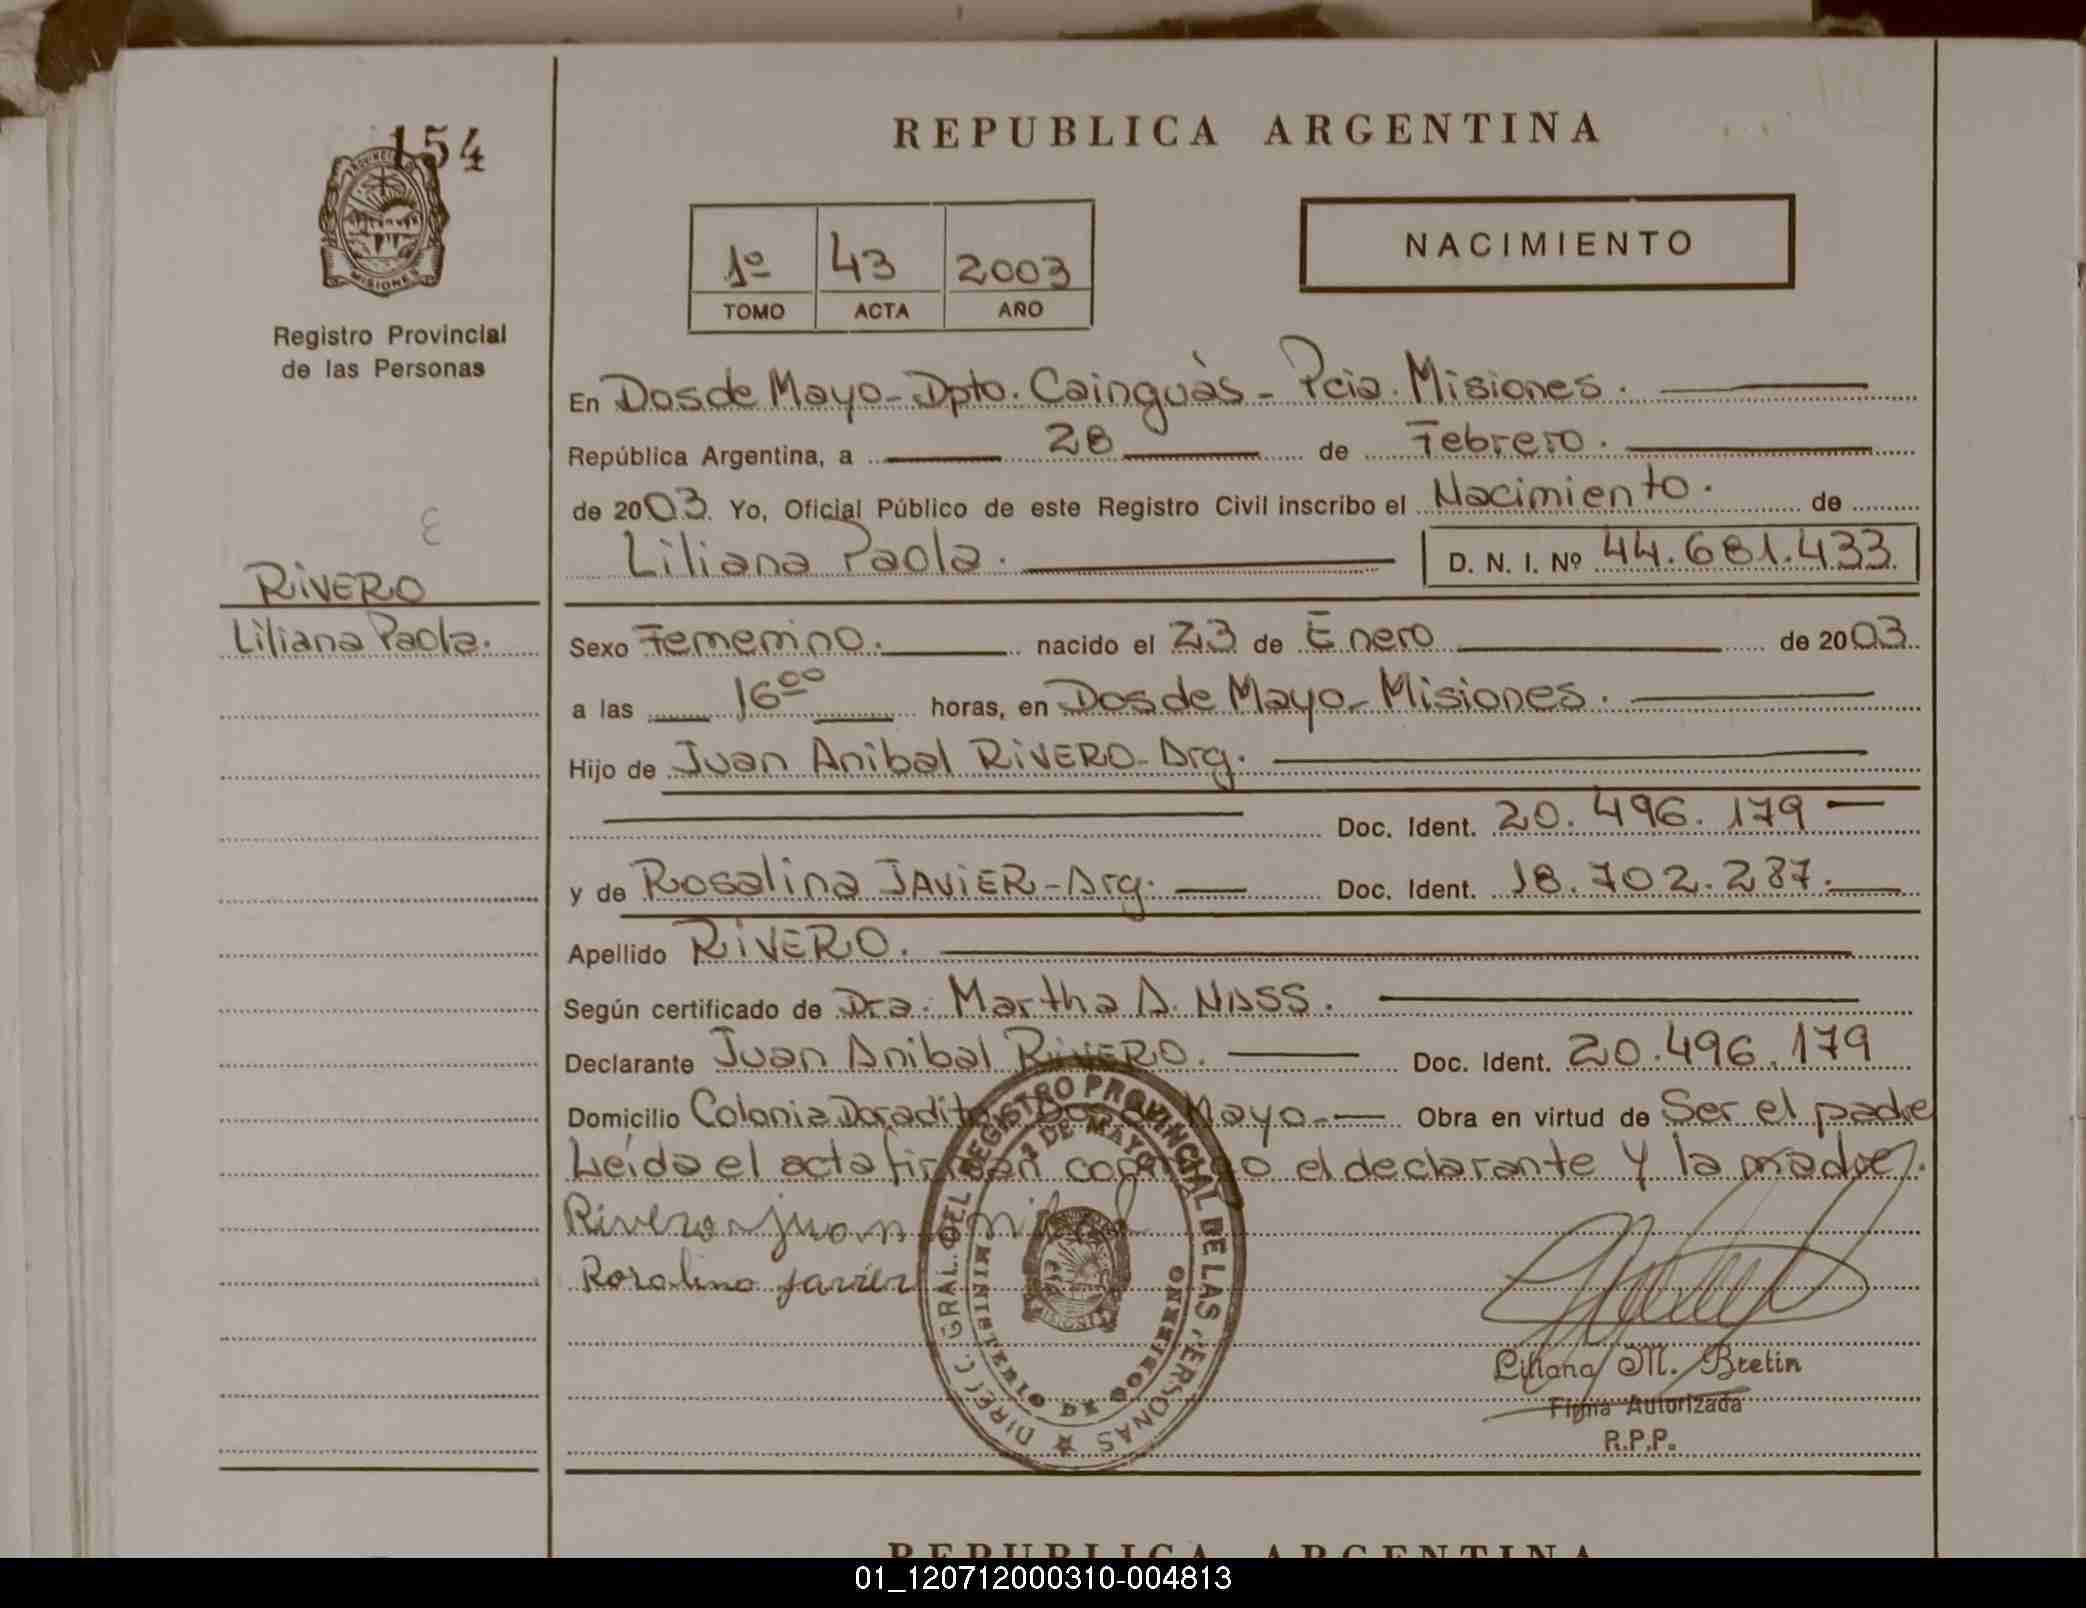 154
PROVINCIA DE
MISIONES
Registro Provincial
de las Personas
REPUBLICA ARGENTINA
1º 43 2003
TOMO ACTA AÑO
NACIMIENTO
En Dos de Mayo - Dpto. Cainguàs - Pcia. Misiones.
República Argentina, a 28 de Febrero.
de 2003. Yo, Oficial Público de este Registro Civil inscribo el Nacimiento. de
Liliana Paola. D. N. I. Nº 44.681.433
RIVERO
Liliana Paola.
Sexo Femenino. nacido el 23 de Enero de 2003.
a las 16 00 horas, en Dos de Mayo - Misiones.
Hijo de Juan Anibal RIVERO - Arg.
Doc. Ident. 20.496.179
y de Rosalina JAVIER - Arg. Doc. Ident. 18.702.287.
Apellido RIVERO.
Según certificado de Dra. Martha A. NASS.
Declarante Juan Anibal RIVERO. Doc. Ident. 20.496.179
Domicilio Colonia Doradito Dos de Mayo - Obra en virtud de Ser el padre
Leída el acta firman conmigo el declarante y la madre.
Rivero Juan Anibal
Rosalina Javier
DIRECC. GRAL. DEL REGISTRO PROVINCIAL DE LAS PERSONAS
2 DE MAYO
MINISTERIO DE GOBIERNO
Liliana M. Bretin
Firma Autorizada
R.P.P.
REPUBLICA ARGENTINA
01_120712000310-004813